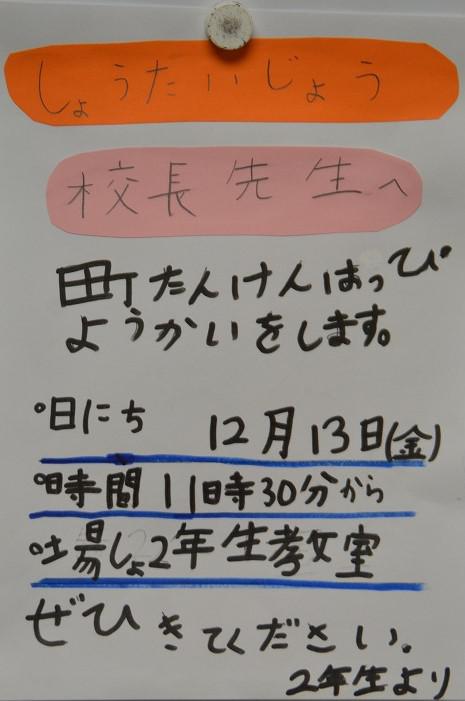 しょうたいじょう
校長先生へ
町たんけんはっぴ
ようかいをします。
°日にち 12月13日(金)
°時間 11時30分から
°場しょ2年生教室
ぜひきてください。
2年生より